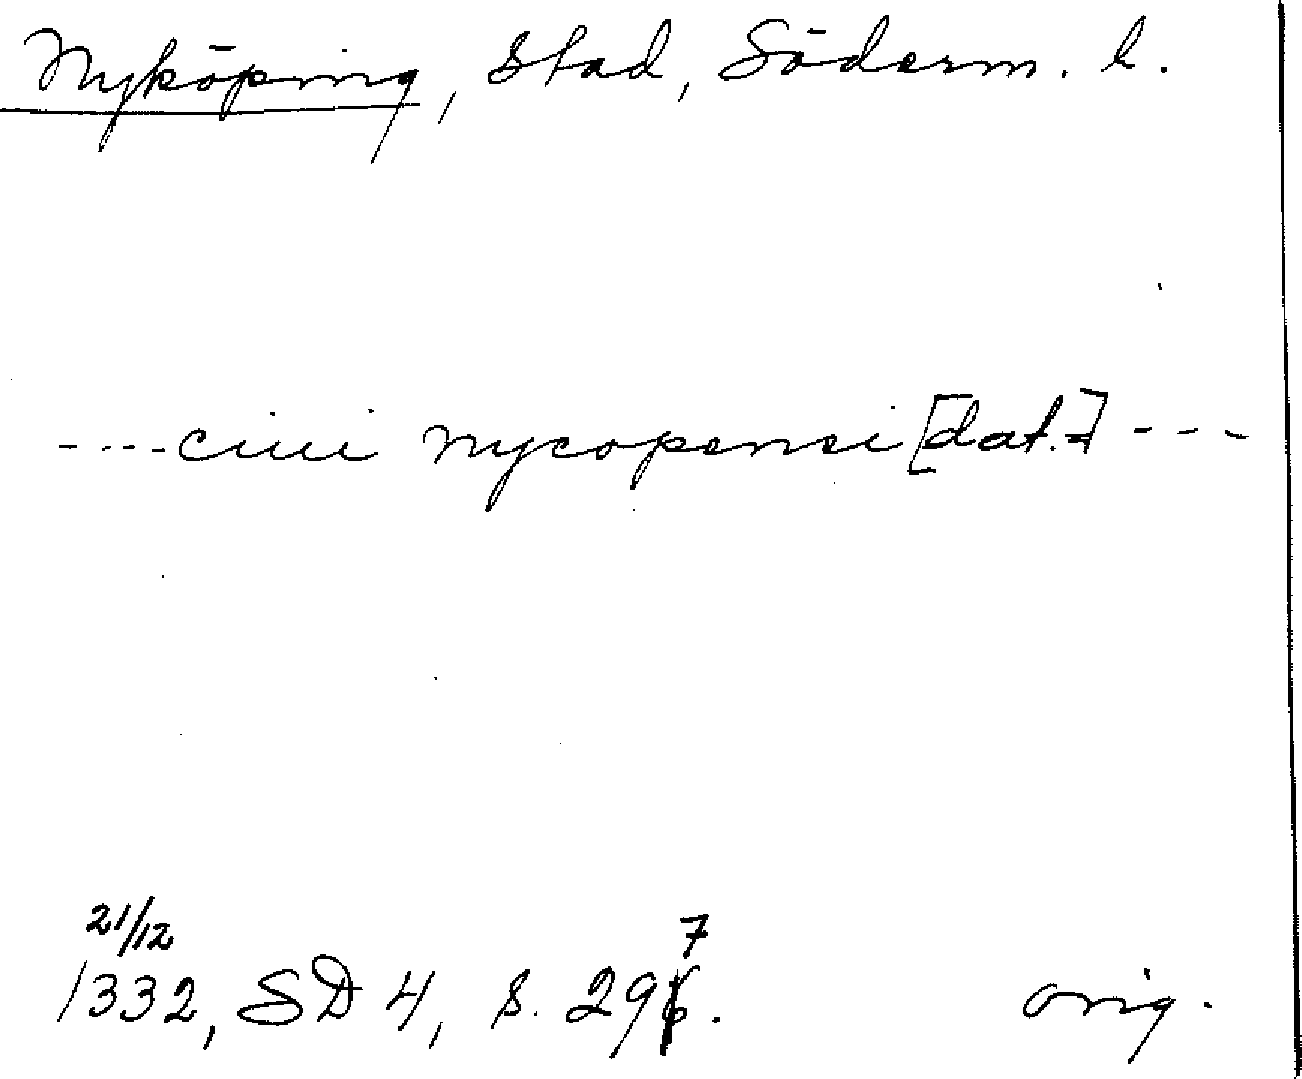 Nyköping, Stad, Söderm. l.
----ciui nycopensi [dat.] ---
21/12
7
1332, SD 4, s. 296. orig.